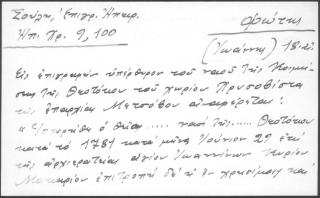 Σούλη, Ἐπιγρ. Ἠπειρ.
Ἠπ. Χρ. 9, 100
Φώτης
(Ἰωάννης) 18
Εἰς ἐπιγραφὴν ὑπέρθυρον τοῦ ναοῦ τῆς Κοιμή-
σεως τῆς Θεοτόκου τοῦ χωρίου
τῆς ἐπαρχίας Μετσόβου ἀναφέρεται:
" Ἱστορήθη ὁ θεῖος..... ναὸς τῆς..... Θεοτόκου
κατὰ τὸ 1781 κατὰ μῆνα Ἰούνιον 29 ἐπὶ
τῆς ἀρχιερατείας ἁγίου Ἰωαννίνων Κυρίου
Μακαρίου ἐπιτροπὴ δὲ τοῦ ἐν χρησίμοις καὶ